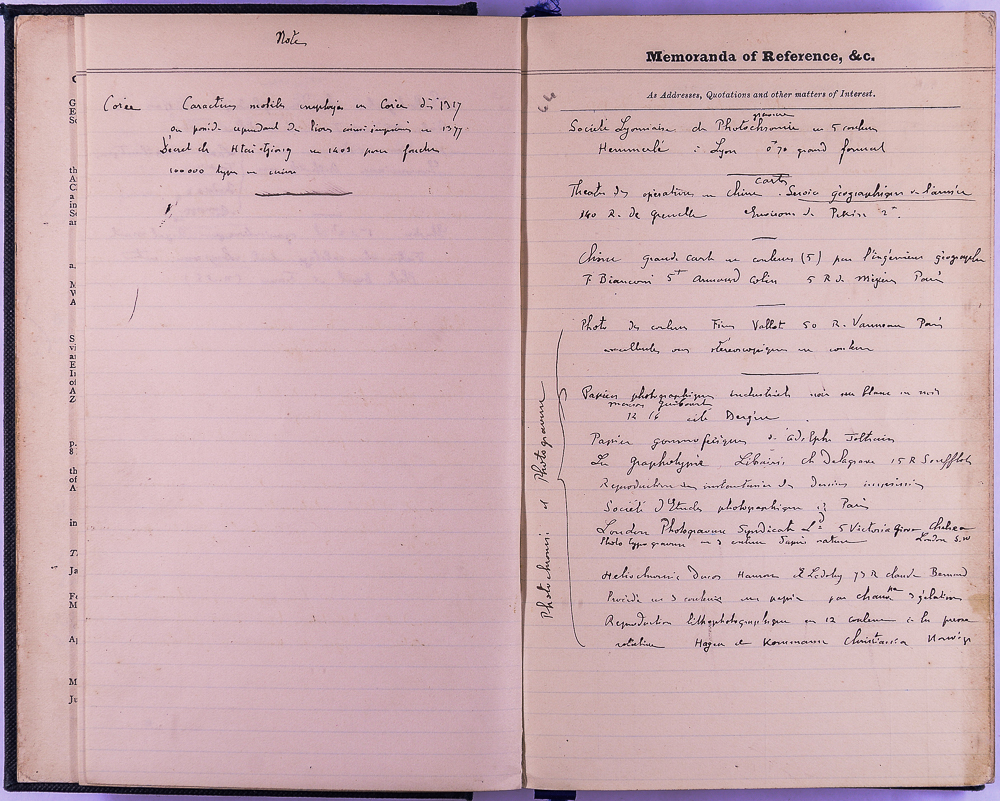 Note
Corée Caractères mobiles employés en Corée dès 1317
on possède cependant des livres ainsi imprimés en 1377
Décret de en 1403 pour fondre
100 000 types en cuivre
Memoranda of Reference, &c.
As Addresses, Quotations and other matters of Interest.
64
Société Lyonnaise de Photochromie en 5 couleurs
Hemmerlé à Lyon 0.70 grand format
Carte
Theatre des opérations en Chine Service géographique de l'armée
140 R. de Grenelle Environs de Pekin 2f.
Chine grande carte en couleurs (5) par l'ingénieur géographe
F Bianconi 5f Armand Colin 5 R de Mézières Paris
Photo des couleurs Vallot 50 R. Vanneau Paris
ou stéréoscopiques en couleur
Papiers photographiques industriels noir sur blanc
maison Guibourt
12 16 cité Bergère
Papier gommoferriques d'Adolphe
La graphotypie Librairie Ch Delagrave 15 R Soufflot
Reproduction instantanée de dessins
Société d'Etudes photographiques à Paris
London Photogravure Syndicate Ld 5 Victoria Grove Chelsea
Photo typogravure en 3 couleurs d'après nature London S.W
Heliochromie Ducos Hauron 73 R Claude Bernard
Procédé en 3 couleurs sur papier par gélatine
Reproduction lithophotographique en 12 couleurs à la presse
rotative Hagen et Kornmann Christiania Norwège
Photochromie et Photogravure